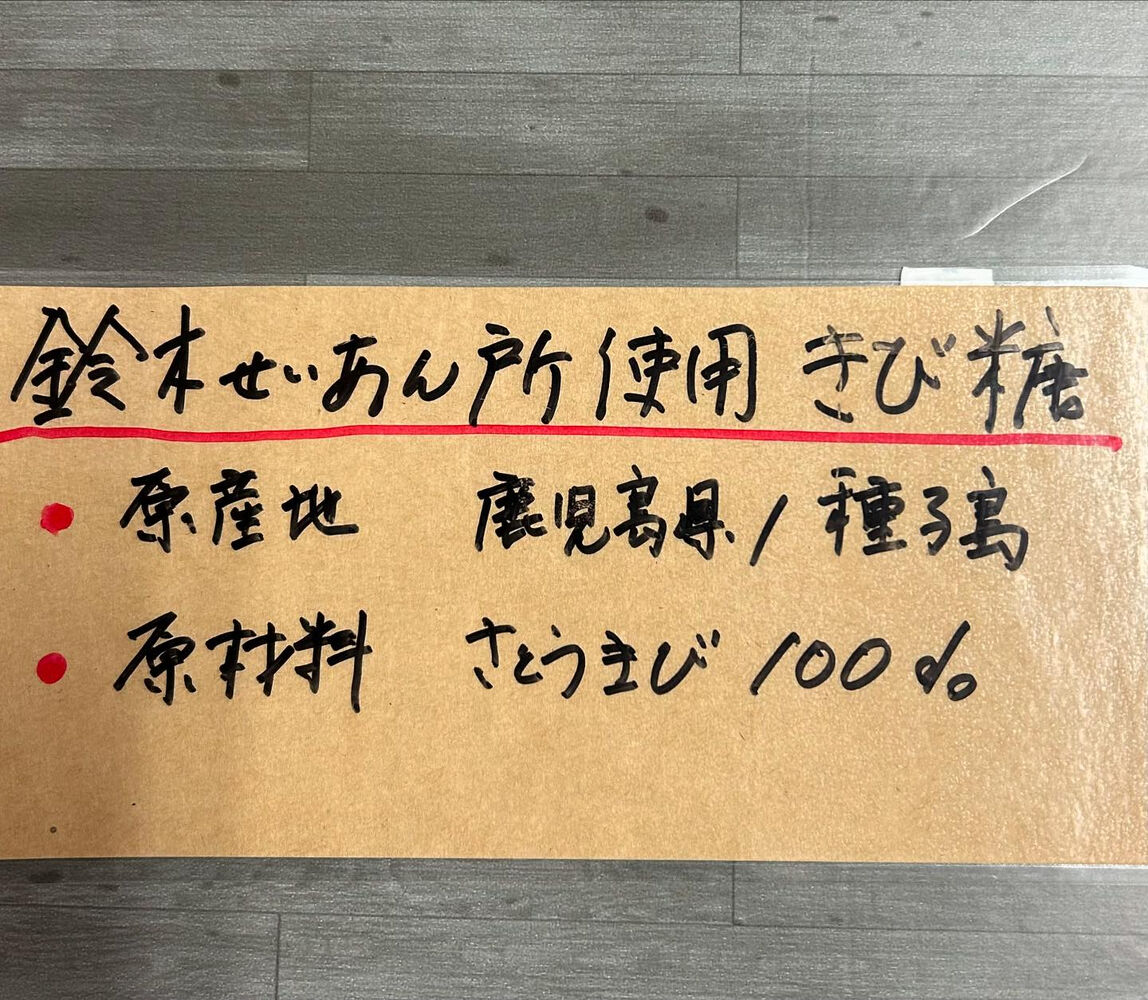 鈴木せいあん所使用 きび糖
• 原産地 鹿児島県/種子島
• 原材料 さとうきび 100%